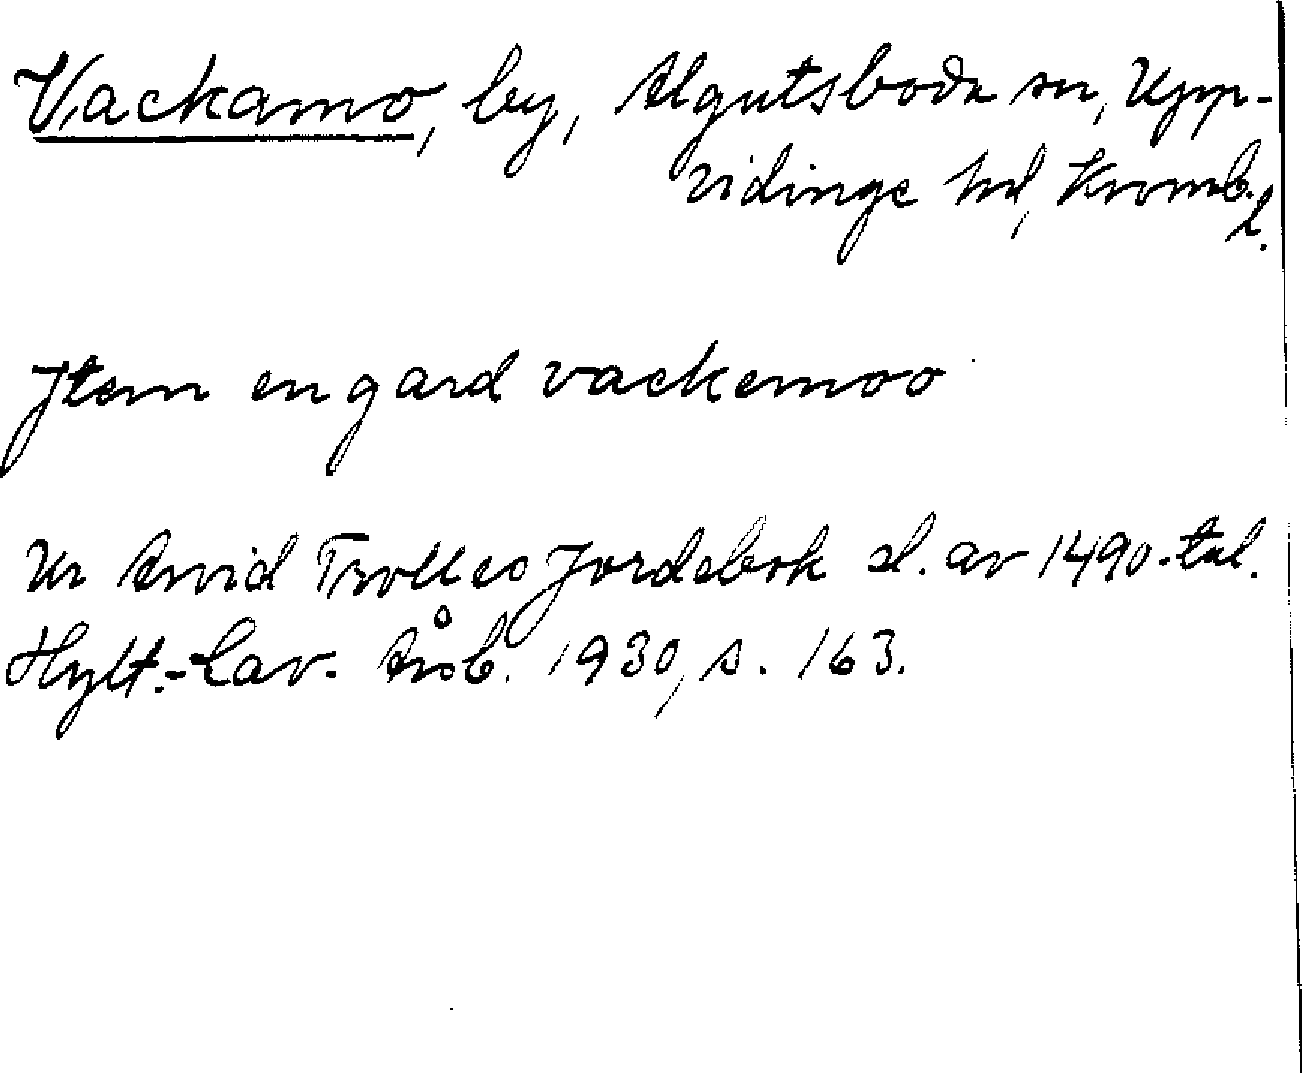 Vackamo, by, Algutsboda sn, Upp-
vidinge hd, Kronob.
l.
Jtem en gard vackemoo
Ur Arvid Trolles Jordebok sl. av 1490-tal.
Hylt.-Cav. Årsb. 1930, s. 163.